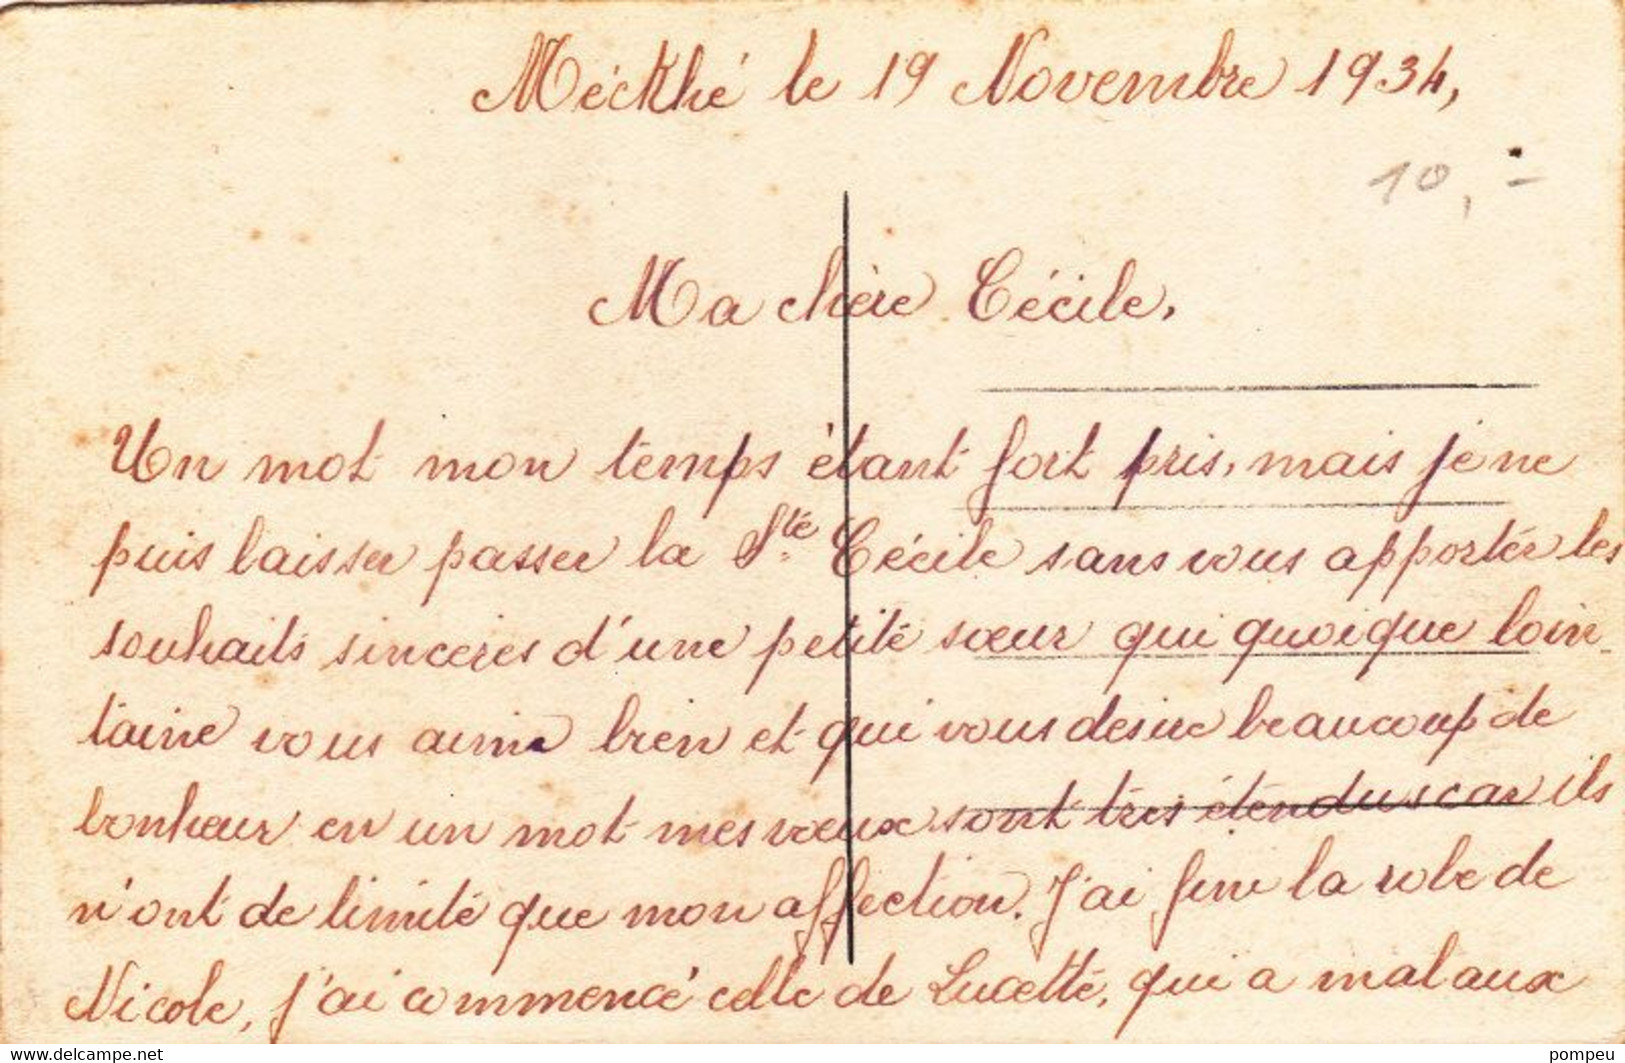 Méckhé le 19 Novembre 1934,
10,-
Ma chère Cécile,
Un mot mon temps étant fort pris, mais je ne
puis laisser passer la Ste Cécile sans vous apporter les
souhaits sinceres d'une petite sœur qui quoique loin-
taine vous aime bien et qui vous desire beaucoup de
bonheur en un mot mes vœux sont très étendus car ils
n'ont de limite que mon affection. J'ai fini la robe de
Nicole, j'ai commencé celle de Lucette, qui a mal aux
www.delcampe.net
pompeu